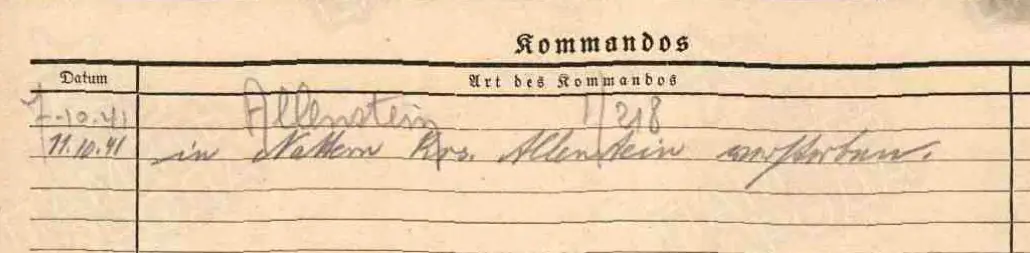 Kommandos
Datum Art des Kommandos
7.10.41 Allenstein 1/218
11.10.41 in Nattern Krs. Allenstein verstorben.